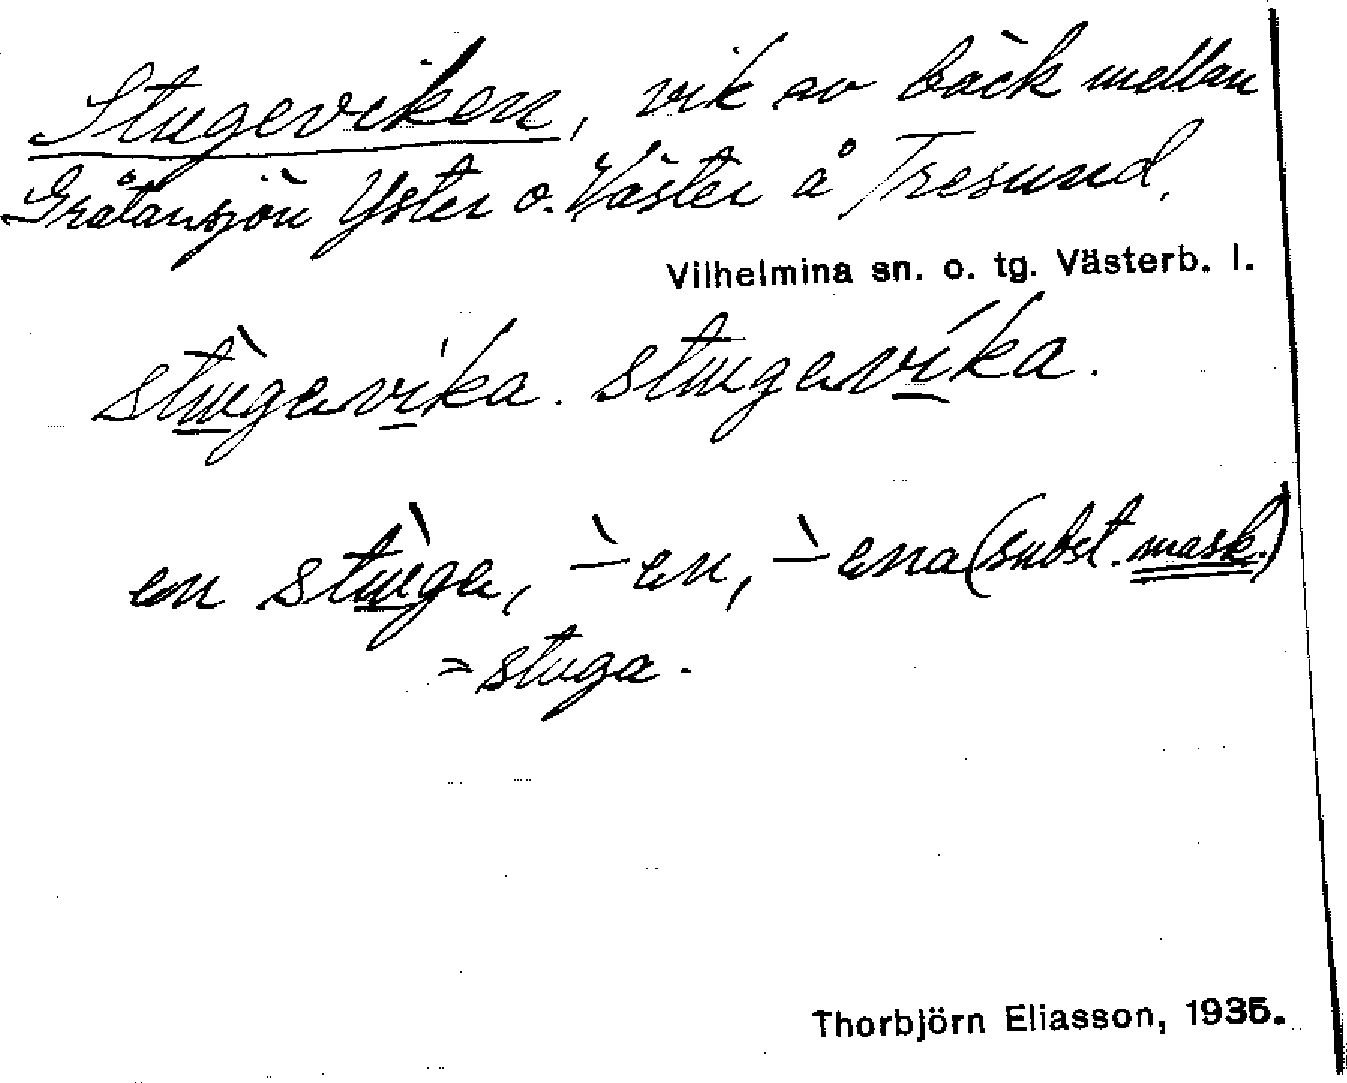 Stugeviken, vik av bäck mellan
Gråtansjön Yster o. Väster å Tresund.
Vilhelmina sn. o. tg. Västerb. l.
stùgavika. stugavíka.
en stùga, ̀-en, ̀-ena (subst. mask.)
= stuga.
Thorbjörn Eliasson, 1935.